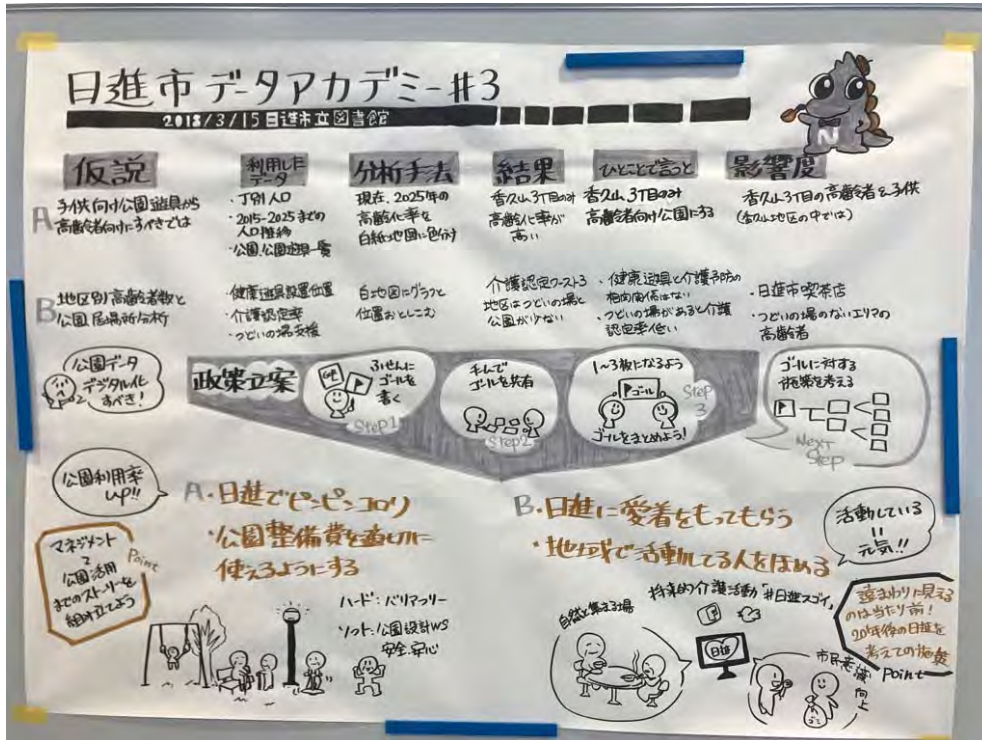 日進市データアカデミー#3
2018/3/15 日進市立図書館
仮説
利用した
データ
分析手法
結果
ひとことで言うと
影響度
A
子供向け公園遊具から
高齢者向けにすべきでは
・丁別人口
・2015-2025までの
人口推移
・公園、公園遊具一覧
現在、2025年の
高齢化率を
白紙地図に色分け
香久山3丁目のみ
高齢化率が
高い
香久山3丁目のみ
高齢者向け公園にする
香久山3丁目の高齢者と子供
(香久山地区の中では)
B
地区別高齢者数と
公園居場所分析
・健康遊具設置位置
・介護認定率
・つどいの場支援
白地図にグラフと
位置おとしこむ
介護認定ワースト3
地区はつどいの場と
公園が少ない
・健康遊具と介護予防の
相関関係はない
・つどいの場があると介護
認定率低い
・日進市喫茶店
・つどいの場のないエリアの
高齢者
公園データ
デジタル化
すべき!
政策立案
ふせんに
ゴールを
書く
Step1
チームで
ゴールを共有
Step2
1~3枚になるよう
ゴール
ゴールをまとめよう!
Step
3
ゴールに対する
施策を考える
Next
Step
公園利用率
UP!!
A・日進でピンピンコロリ
・公園整備費を適切に
使えるようにする
マネジメント
公園活用
までのストーリーを
組み立てよう
Point
ハード:バリアフリー
ソフト:公園設計WS
安全、安心
B・日進に愛着をもってもらう
・地域で活動してる人をほめる
活動している
=
元気!!
自然と集まる場
将来的介護活動「#日進スゴイ」
日進
市民意識向上
遠まわりに見える
のは当たり前!
20年後の日進を
考えての施策
Point
N